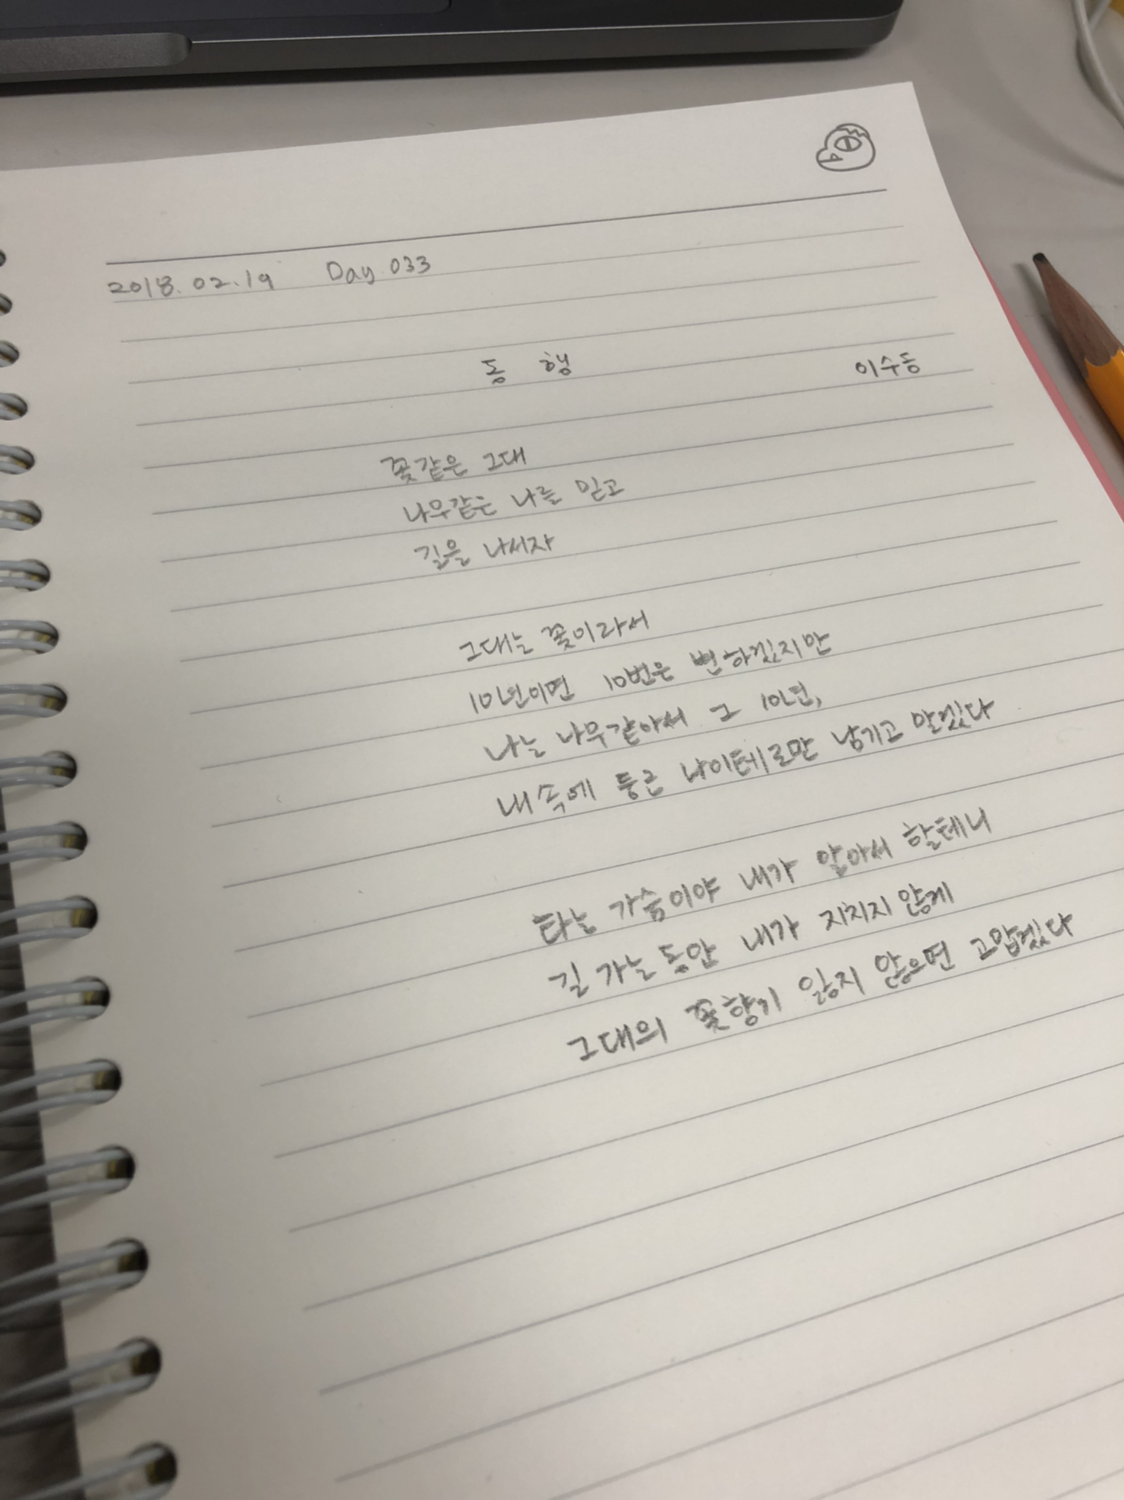 2018.02.19 Day 033
동 행 이수동
꽃같은 그대
나무같은 나를 믿고
길을 나서자
그대는 꽃이라서
10년이면 10번은 변하겠지만
나는 나무같아서 그 10년,
내 속에 둥근 나이테로만 남기고 말겠다
타는 가슴이야 내가 알아서 할테니
길 가는 동안 내가 지치지 않게
그대의 꽃향기 잃지 않으면 고맙겠다